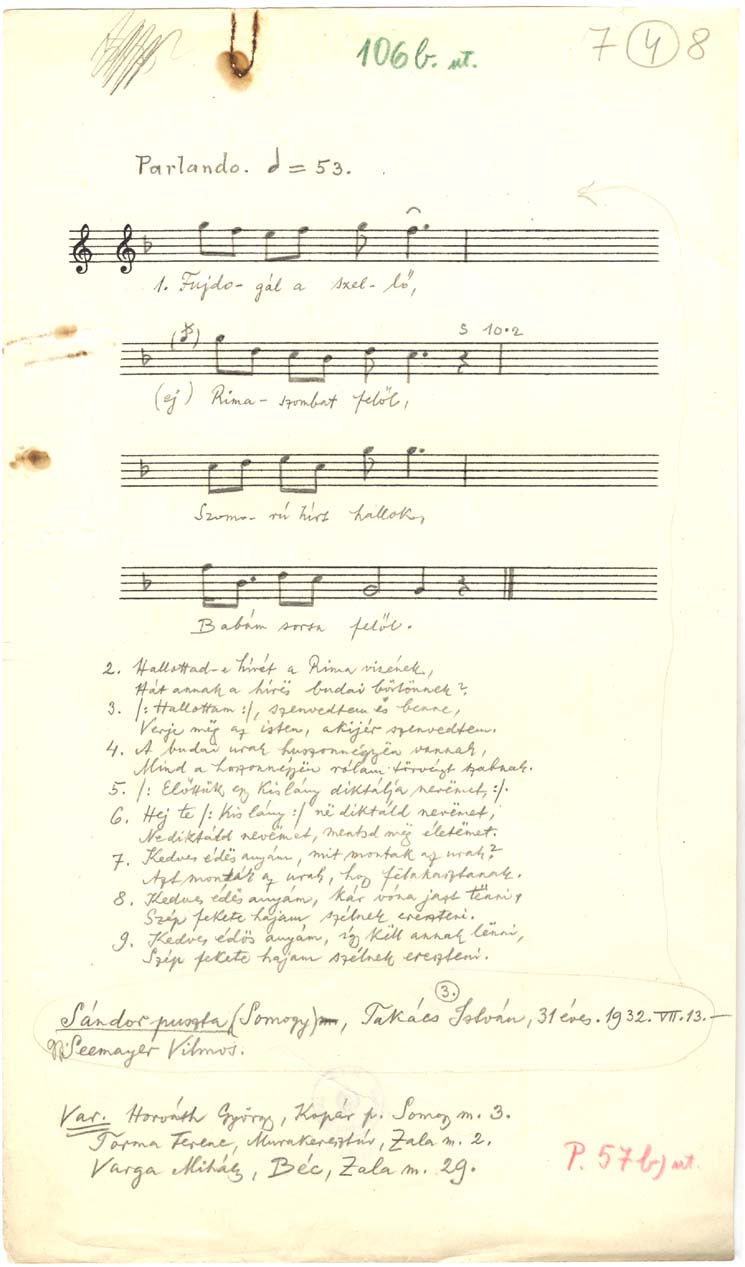 106b. ut.
7 4 8
Parlando. = 53.
1. Fujdo- gál a szel- lő,
5 10.2
(ej) Rima- szombat felöl,
Szomo- rú hírt hallok,
Babám sorsa felöl.
2. Hallottad-e hírét a Rima vizének,
Hát annak a híres budai börtönnek?
3. /: Hallottam :/, szenvedtem is benne,
Verje mëg az isten, akijér szenvedtem.
4. A budai urak huszonnégyen vannak,
Mind a huszonnégyen rólam törvényt szabnak.
5. /: Előttük egy kislány diktálja nevemet, :/.
6. Hej te /: Kislány :/ në diktáld nevëmet,
Ne diktáld nevëmet, mentsd mëg életëmet.
7. Kedves édës anyám, mit montak az urak?
Azt monták az urak, hogy fölakasztanak.
8. Kedves édës anyám, kár vóna jazt tënni,
Szép fekete hajam szélnek ereszteni.
9. Kedves édös anyám, így këll annak lënni,
Szép fekete hajam szélnek ereszteni.
3.
Sándor puszta (Somogy), Takács István, 31 éves. 1932. VII. 13. –
Gy: Seemayer Vilmos.
Var. Horváth György, Kopár p. Somogy m. 3.
Torma Ferenc, Murakeresztúr, Zala m. 2.
Varga Mihály, Béc, Zala m. 29.
P. 57b) ut.